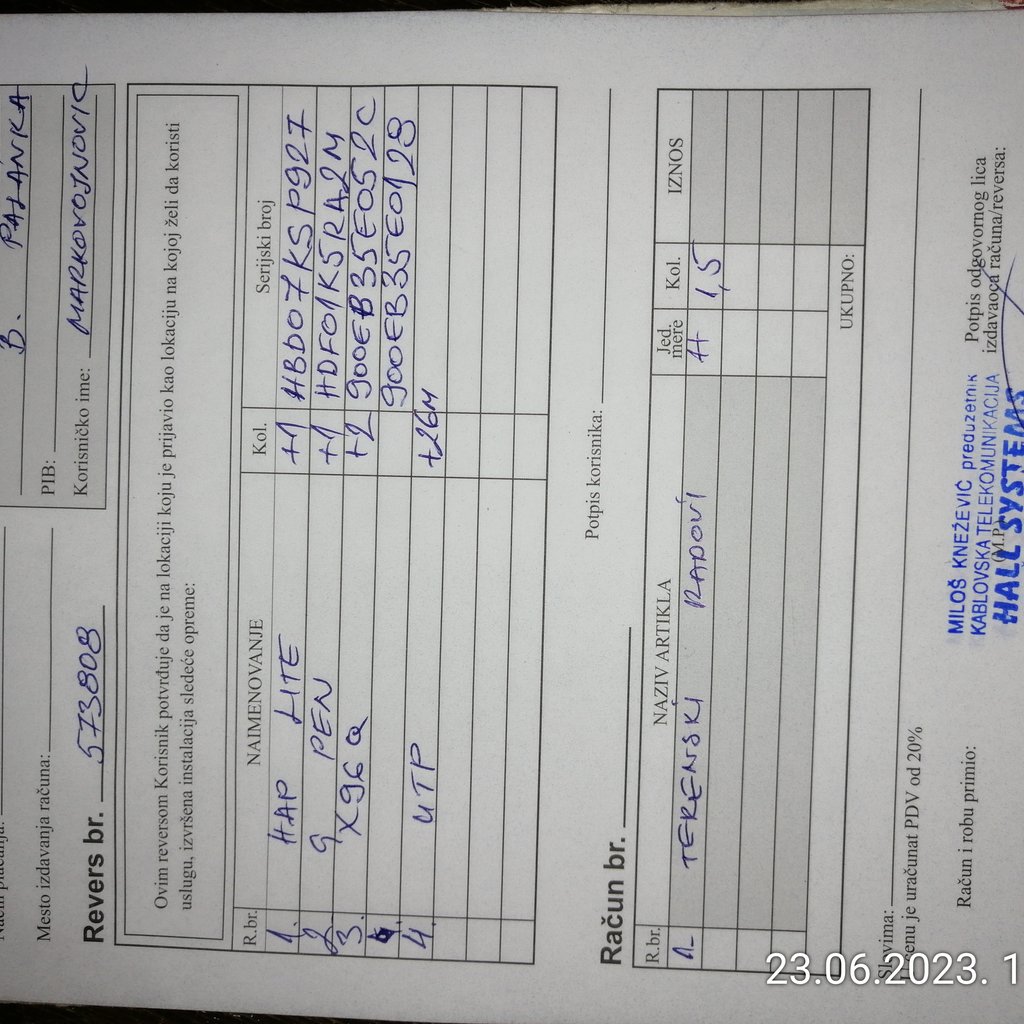 B. PALANKA
PIB:
Mesto izdavanja računa:
Korisničko ime: MARKOVOJNOVIC
Revers br. 573808
Ovim reversom Korisnik potvrđuje da je na lokaciji koju je prijavio kao lokaciju na kojoj želi da koristi
uslugu, izvršena instalacija sledeće opreme:
R.br. NAIMENOVANJE Kol. Serijski broj
1. HAP LITE +1 HBD07KSP927
2. G PEN +1 HDF01K5RA2M
3. X96Q +2 900EB35E052C
900EB35E0128
4. UTP +26M
Potpis korisnika:
Račun br.
R.br. NAZIV ARTIKLA Jed. mere Kol. IZNOS
1. TERENSKI RADOVI H 1,5
UKUPNO:
Slovima:
U cenu je uračunat PDV od 20%
Račun i robu primio:
MILOŠ KNEŽEVIĆ preduzetnik
KABLOVSKA TELEKOMUNIKACIJA
(M.P.)
HALL SYSTEMS
Potpis odgovornog lica
izdavaoca računa/reversa:
23.06.2023. 1